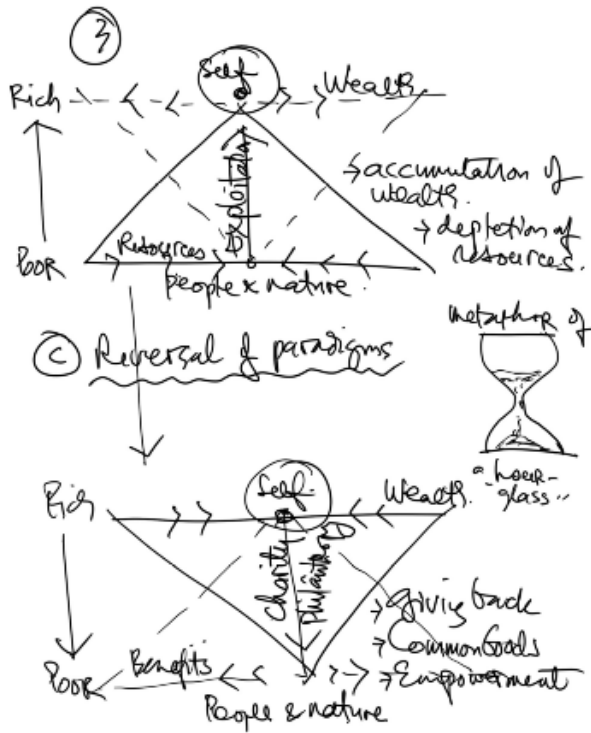 3
Self
Rich
Wealth
Exploitation
→ accumulation of
wealth.
→ depletion of
resources.
Resources
Poor
People & nature.
metaphor of
C Reversal of paradigms
"hour-
glass"
Self
Rich
Wealth.
Charity
Philanthropy
→ Giving back
→ Common Goods
→ Empowerment
Benefits
Poor
People & nature